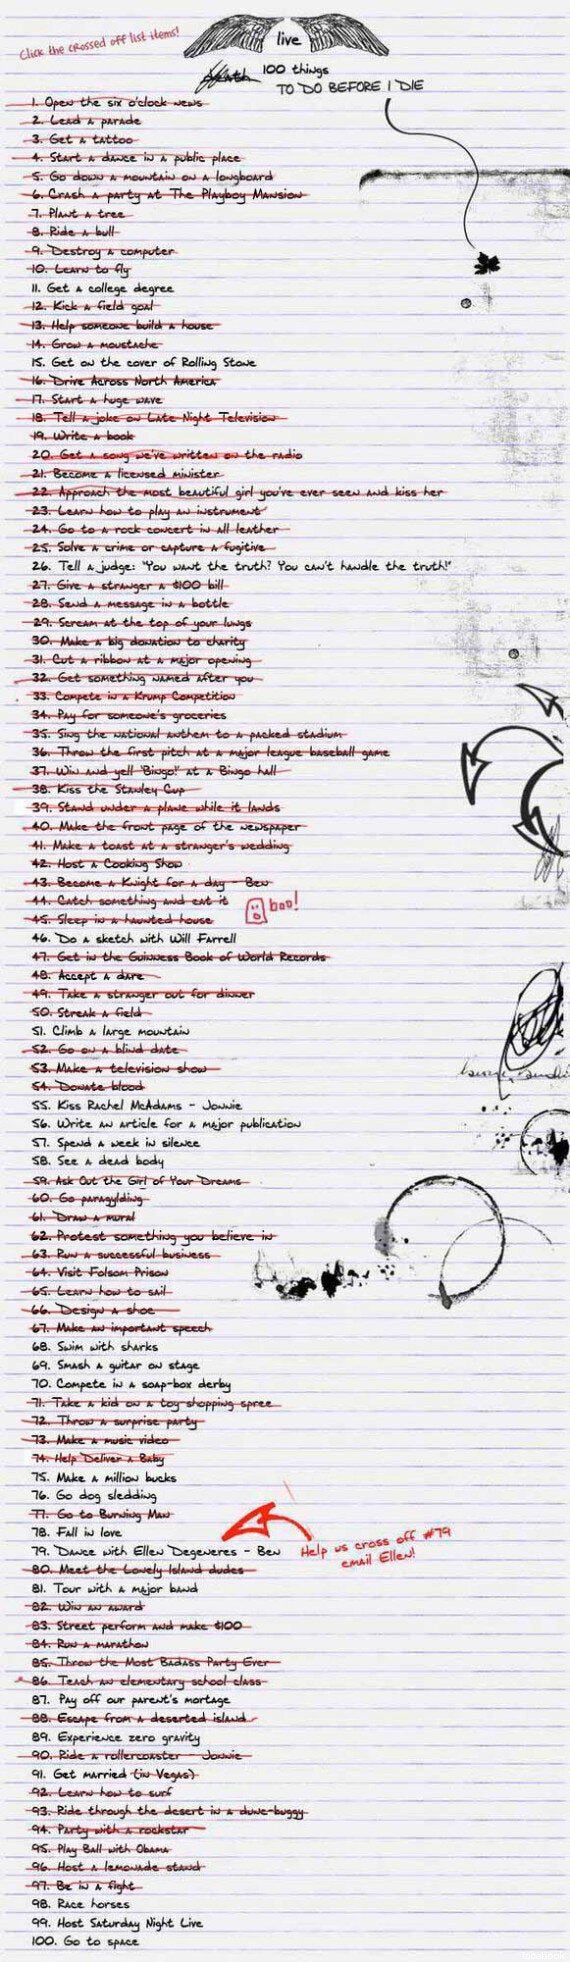 Click the crossed off list items!
live
death 100 things
TO DO BEFORE I DIE
1. Open the six o'clock news
2. Lead a parade
3. Get a tattoo
4. Start a dance in a public place
5. Go down a mountain on a longboard
6. Crash a party at The Playboy Mansion
7. Plant a tree
8. Ride a bull
9. Destroy a computer
10. Learn to fly
11. Get a college degree
12. Kick a field goal
13. Help someone build a house
14. Grow a moustache
15. Get on the cover of Rolling Stone
16. Drive Across North America
17. Start a huge wave
18. Tell a joke on Late Night Television
19. Write a book
20. Get a song we've written on the radio
21. Become a licensed minister
22. Approach the most beautiful girl you've ever seen and kiss her
23. Learn how to play an instrument
24. Go to a rock concert in all leather
25. Solve a crime or capture a fugitive
26. Tell a judge: "You want the truth? You can't handle the truth!"
27. Give a stranger a $100 bill
28. Send a message in a bottle
29. Scream at the top of your lungs
30. Make a big donation to charity
31. Cut a ribbon at a major opening
32. Get something named after you
33. Compete in a Krump Competition
34. Pay for someone's groceries
35. Sing the national anthem to a packed stadium
36. Throw the first pitch at a major league baseball game
37. Win and yell 'Bingo!' at a Bingo hall
38. Kiss the Stanley Cup
39. Stand under a plane while it lands
40. Make the front page of the newspaper
41. Make a toast at a stranger's wedding
42. Host a Cooking Show
43. Become a Knight for a day - Ben
44. Catch something and eat it
boo!
45. Sleep in a haunted house
46. Do a sketch with Will Farrell
47. Get in the Guinness Book of World Records
48. Accept a dare
49. Take a stranger out for dinner
50. Streak a field
51. Climb a large mountain
52. Go on a blind date
53. Make a television show
54. Donate blood
55. Kiss Rachel McAdams - Jonnie
56. Write an article for a major publication
57. Spend a week in silence
58. See a dead body
59. Ask Out the Girl of Your Dreams
60. Go paragylding
61. Draw a mural
62. Protest something you believe in
63. Run a successful business
64. Visit Folsom Prison
65. Learn how to sail
66. Design a shoe
67. Make an important speech
68. Swim with sharks
69. Smash a guitar on stage
70. Compete in a soap-box derby
71. Take a kid on a toy shopping spree
72. Throw a surprise party
73. Make a music video
74. Help Deliver a Baby
75. Make a million bucks
76. Go dog sledding
77. Go to Burning Man
78. Fall in love
79. Dance with Ellen Degeneres - Ben
Help us cross off #79
email Ellen!
80. Meet the Lonely Island dudes
81. Tour with a major band
82. Win an award
83. Street perform and make $100
84. Run a marathon
85. Throw the Most Badass Party Ever
86. Teach an elementary school class
87. Pay off our parent's mortage
88. Escape from a deserted island
89. Experience zero gravity
90. Ride a rollercoaster - Jonnie
91. Get married (in Vegas)
92. Learn how to surf
93. Ride through the desert in a dune-buggy
94. Party with a rockstar
95. Play Ball with Obama
96. Host a lemonade stand
97. Be in a fight
98. Race horses
99. Host Saturday Night Live
100. Go to space